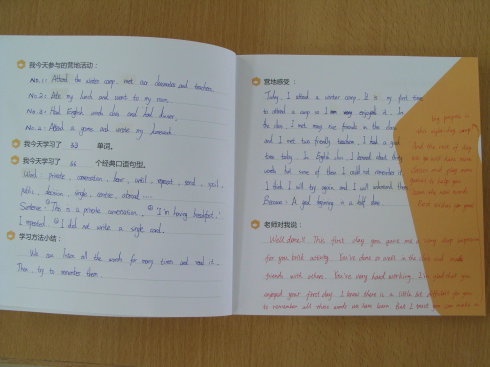 我今天参与的营地活动：
No.1: Attend the winter camp. met our classmates and teachers.
No.2: Ate my lunch and went to my room.
No.3: Had English words class and had dinner.
No.4: Attend a game and wrote my homework.
我今天学习了 33 单词。
我今天学习了 66 个经典口语句型。
Word: private, conversation, bear, until, repeat, send, spill,
public, decision, single, service, abroad
Sentence: ① This is a private conversation. ② "I'm having breakfast."
I repeated. ③ I did not write a single card.
学习方法小结：
We can listen all the words for many times and read it.
Then, try to remember them.
营地感受：
Today, I attend a winter camp. It is my first time
to attend a camp so I am very enjoyed it. In
the class, I met many nice friends in the class
and I met two friendly teachers, I had a good
time today. In English class, I learned about thirty
words, but some of them I could not remember it.
I think I will try again and I will understand them.
Because: A good beginning is a half done.
老师对我说：
Well done!! This first day you gave me a very deep impression
for you bold activity. You've done so well in the class and made
friends with others. You're very hard working. I'm glad that you
enjoyed your first day. I know there is a little bit difficult for you
to remember all these words we have learn but I trust you can make it.
big progress in
this eight-day camp
And the rest of day
we will have more
classes and play more
games to help you
learn the new words.
Best wishes for you!